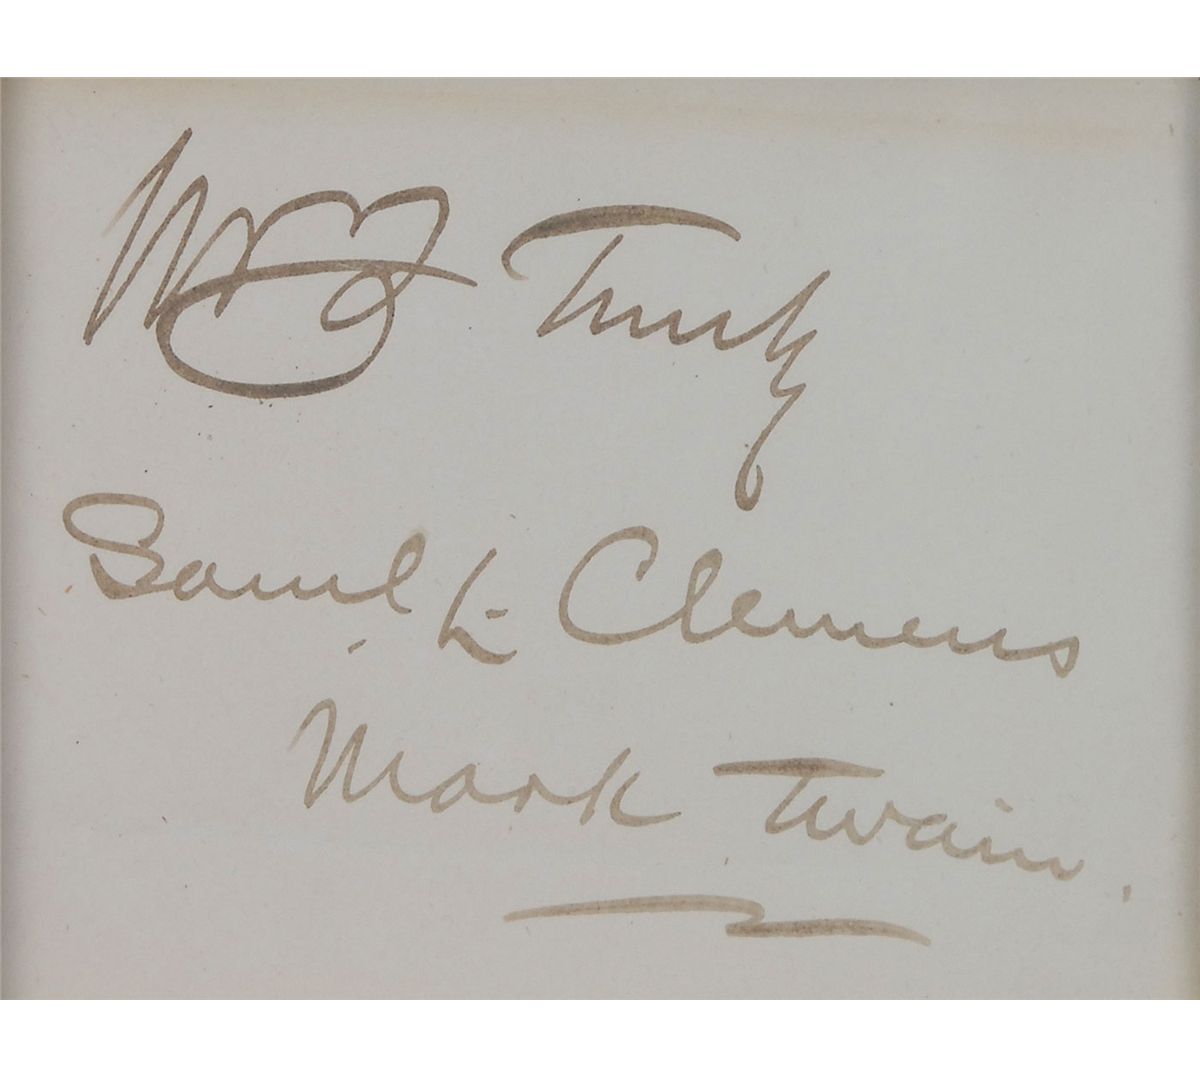 Truly
Saml L. Clemens
Mark Twain.